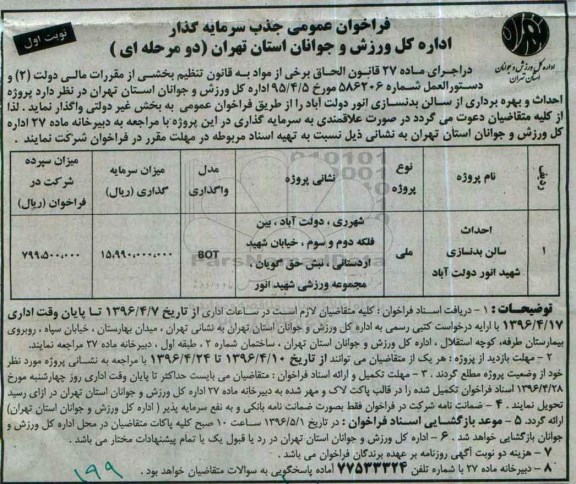 فراخوان عمومی جذب سرمایه گذار
اداره کل ورزش و جوانان استان تهران (دو مرحله ای)
نوبت اول
اداره کل ورزش و جوانان
استان تهران
در اجرای ماده ۲۷ قانون الحاق برخی از مواد به قانون تنظیم بخشی از مقررات مالی دولت (۲) و
دستورالعمل شماره ۵۸۶۲۰۶ مورخ ۹۵/۴/۵ اداره کل ورزش و جوانان استان تهران در نظر دارد پروژه
احداث و بهره برداری از سالن بدنسازی انور دولت آباد را از طریق فراخوان عمومی به بخش غیر دولتی واگذار نماید. لذا
از کلیه متقاضیان دعوت می گردد در صورت علاقمندی به سرمایه گذاری در این پروژه با مراجعه به دبیرخانه ماده ۲۷ اداره
کل ورزش و جوانان استان تهران به نشانی ذیل نسبت به تهیه اسناد مربوطه در مهلت مقرر در فراخوان شرکت نمایند.
ردیف
نام پروژه
نوع پروژه
نشانی پروژه
مدل واگذاری
میزان سرمایه گذاری (ریال)
میزان سپرده شرکت در فراخوان (ریال)
۱
احداث
سالن بدنسازی
شهید انور دولت آباد
ملی
شهرری، دولت آباد، بین
فلکه دوم و سوم، خیابان شهید
اردستانی، نبش حق گویان،
مجموعه ورزشی شهید انور
BOT
۱۵,۹۹۰,۰۰۰,۰۰۰
۷۹۹,۵۰۰,۰۰۰
توضیحات: ۱- دریافت اسناد فراخوان: کلیه متقاضیان لازم است در ساعات اداری از تاریخ ۱۳۹۶/۴/۷ تا پایان وقت اداری
۱۳۹۶/۴/۱۷ با ارایه درخواست کتبی رسمی به اداره کل ورزش و جوانان استان تهران به نشانی تهران، میدان بهارستان، خیابان سپاه، روبروی
بیمارستان طرفه، کوچه استقلال، اداره کل ورزش و جوانان استان تهران، ساختمان شماره ۲، طبقه اول، دبیرخانه ماده ۲۷ مراجعه نمایند.
۲- مهلت بازدید از پروژه: هر یک از متقاضیان می توانند از تاریخ ۱۳۹۶/۴/۱۰ تا ۱۳۹۶/۴/۲۴ با مراجعه به نشانی پروژه مورد نظر
خود از وضعیت پروژه مطلع گردند. ۳- مهلت تکمیل و ارائه اسناد فراخوان: متقاضیان می بایست حداکثر تا پایان وقت اداری روز چهارشنبه مورخ
۱۳۹۶/۴/۲۸ اسناد فراخوان تکمیل شده را در قالب پاکت لاک و مهر شده به دبیرخانه ماده ۲۷ اداره کل ورزش و جوانان استان تهران در ازای رسید
تحویل نمایند. ۴- ضمانت نامه شرکت در فراخوان فقط بصورت ضمانت نامه بانکی و به نفع سرمایه پذیر (اداره کل ورزش و جوانان استان تهران)
ارائه گردد. ۵- موعد بازگشایی اسناد فراخوان: در تاریخ ۱۳۹۶/۵/۱ ساعت ۱۰ صبح کلیه پاکات متقاضیان در محل اداره کل ورزش و
جوانان بازگشایی خواهد شد. ۶- اداره کل ورزش و جوانان استان تهران در رد یا قبول یک یا تمام پیشنهادات مختار می باشد.
۷- هزینه دو نوبت آگهی روزنامه بر عهده برندگان فراخوان می باشد.
۸- دبیرخانه ماده ۲۷ با شماره تلفن ۷۷۵۳۳۳۲۴ آماده پاسخگویی به سوالات متقاضیان خواهد بود.
۱۹۹